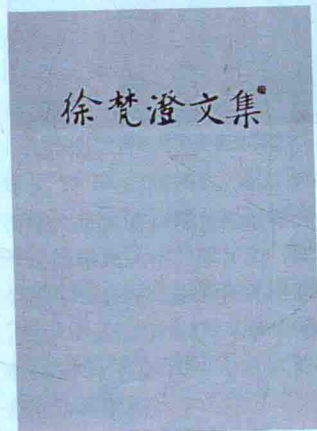 徐梵澄文集